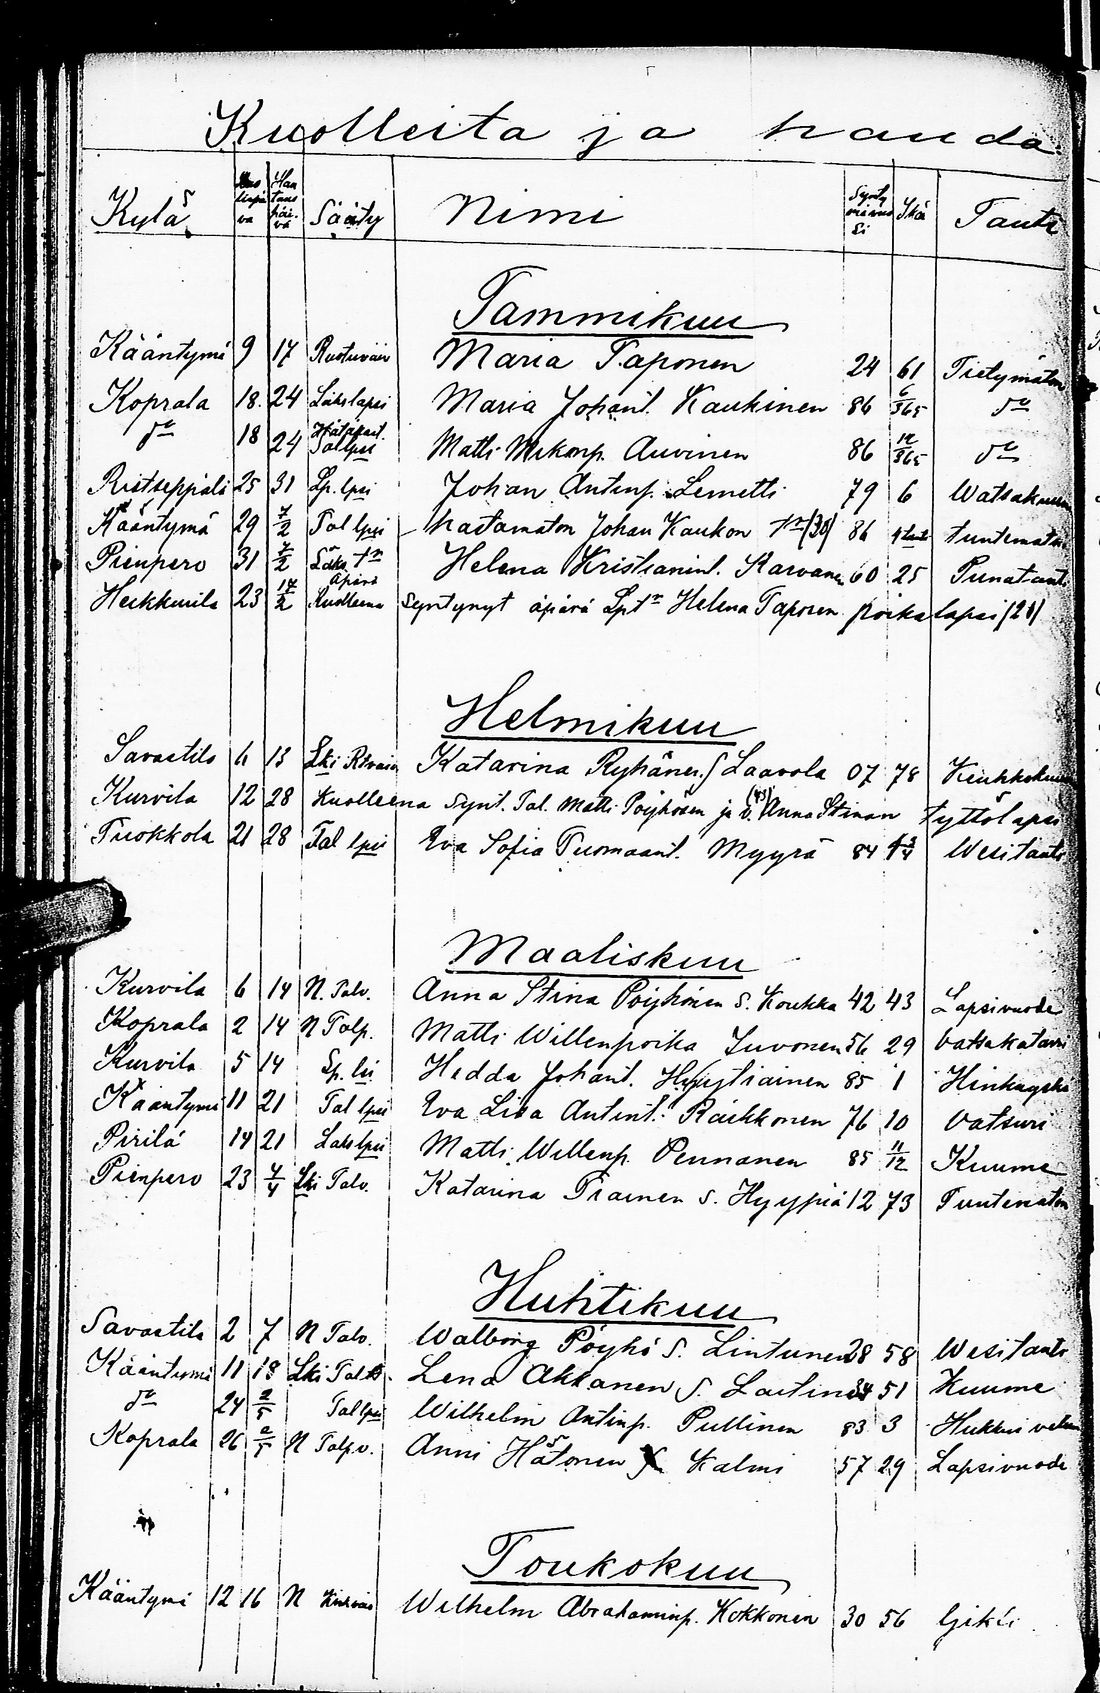 Kuolleita ja hauda
Kylä Kuolinpäivä Hautauspäivä Sääty Nimi Syntymävuosi Ikä Tauti
Tammikuu
Kääntymä 9 17 Maria Taponen 24 61 Tietymätön
Koprala 18. 24 Lskslapsi Maria Johant. Kaukinen 86 6/365 do
do 18 24 Hätäkast. Tal lpsi Matti Mikonp. Auvinen 86 12/365 do
Ristseppälä 25 31 Lp. lpsi Johan Antinp. Lemetti 79 6 Watsakuume
Kääntymä 29 7/2 Tal lpsi hatamaton Johan Kaukon tr (38) 86 tuntematon
Pienpero 31 7/2 Helena Kristianint. Karvanen 60 25 Punatauti
Heikkurila 23 14/2 Äpärä Kuolleena syntynyt äpärä Lp tr Helena Taposen poikalapsi (28)
Helmikuu
Savastila 6 13 Lki Katarina Ryhänen S. Laavola 07 78 Keuhkokuume
Kurvila 12 28 Kuolleena Synt. Tal. Matti Pöyhösen ja v. (43) Anna Stinan tyttölapsi
Tuokkola 21 28 Tal lpsi Eva Sofia Tuomaant. Myyrä 84 Wesitauti
Maaliskuu
Kurvila 6 14 N. Talv. Anna Stina Pöyhönen S. Koukka 42 43 Lapsivuode
Koprala 2 14 N Talp. Matti Willenpoika Juvonen 56 29 Vatsakatarri
Kurvila 5 14 Hedda Johant. Hyytiäinen 85 1 Hinkuyskä
Kääntymä 11 21 Tal lpsi Eva Liisa Antint. Räikkönen 76 10 Vatsuri
Pirilä 14 21 Lskslpsi Matti Willenp. Pennanen 85 11/12 Kuume
Pienpero 23 4/4 Lki Talv. Katarina Piainen S. Hyypiä 12 73 Tuntematon
Huhtikuu
Savastila 2 7 N Talv. Walborg Pöyhö S. Lintunen 28 58 Wesitauti
Kääntymä 11 18 Lki Tal Lena Akkanen S. Laitinen 34 51 Kuume
do 24 2/5 Tal lpsi Wilhelm Antinp. Pullinen 83 3
Koprala 26 2/5 N Talp.v. Anni Hätönen S. Kalmi 57 29 Lapsivuode
Toukokuu
Kääntymä 12 16 N Wilhelm Abrahaminp. Kokkonen 30 56